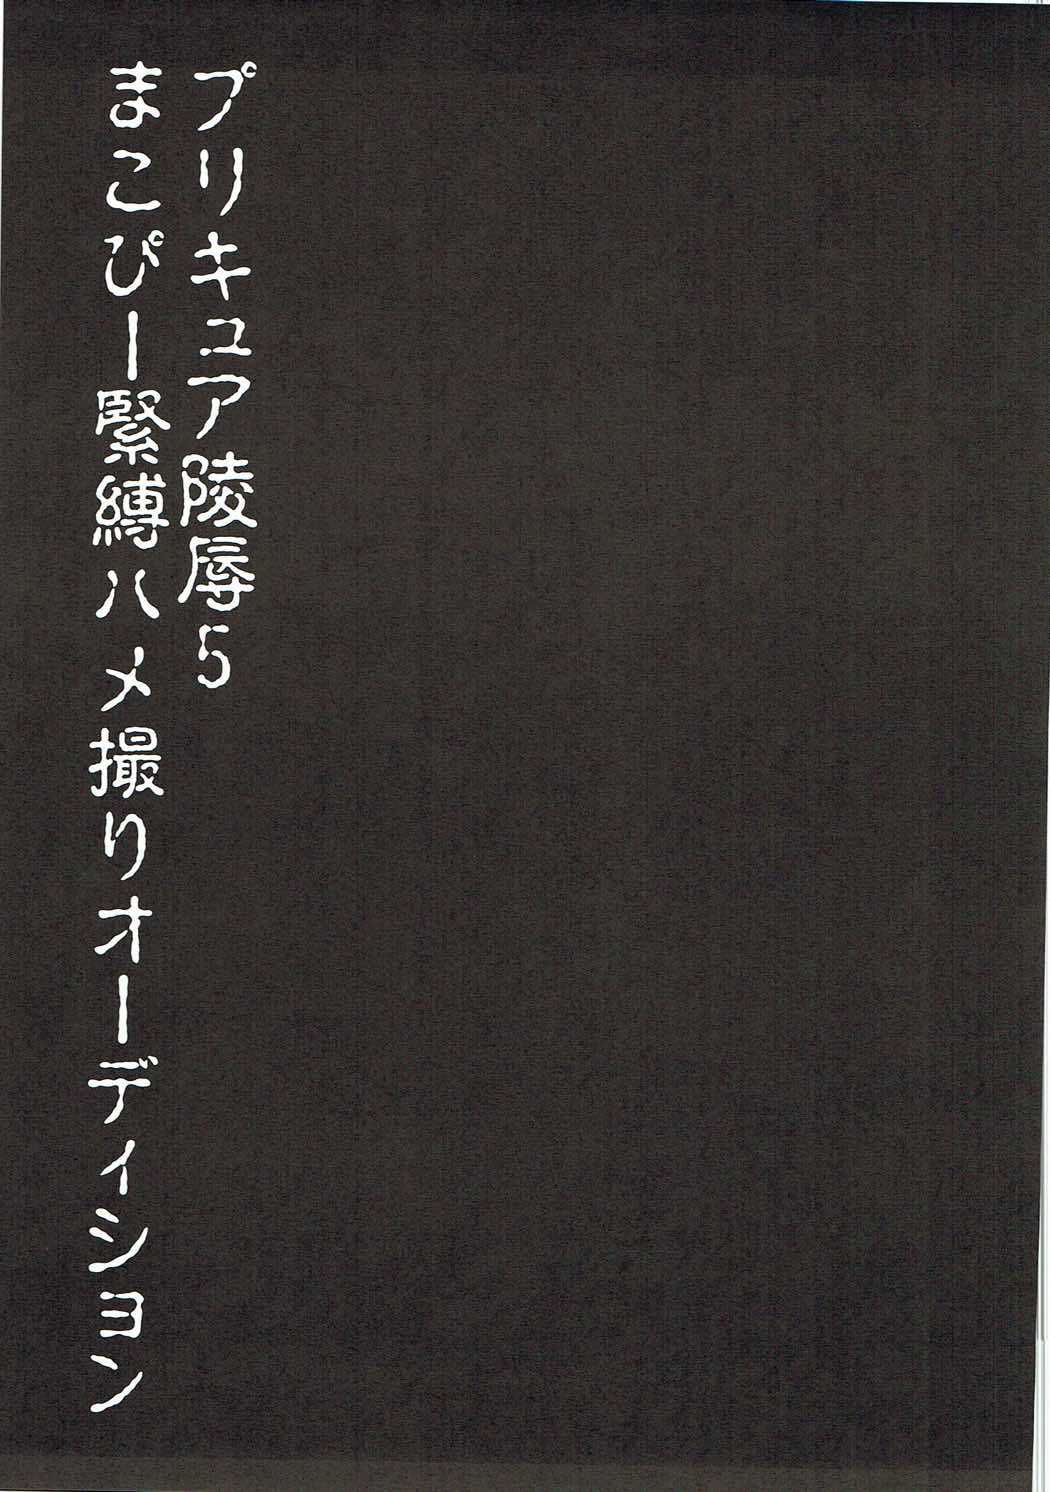 プリキュア陵辱5
まこぴー緊縛ハメ撮りオーディション